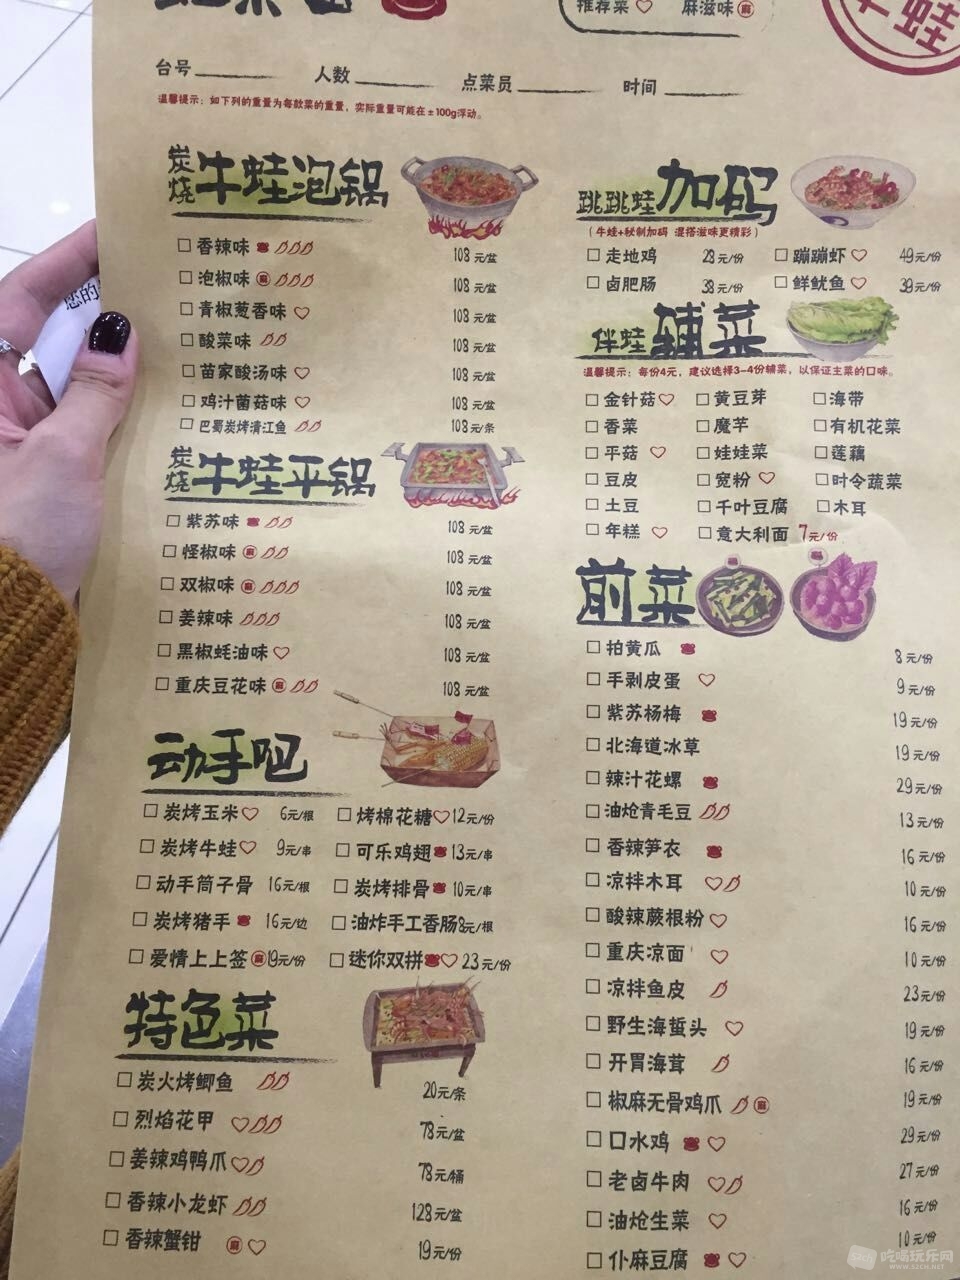 推荐菜 麻滋味 麻
牛蛙
台号 人数 点菜员 时间
温馨提示：如下列的重量为每款菜的重量，实际重量可能在±100g浮动。
您的
炭烧牛蛙泡锅
香辣味 108元/盆
泡椒味 麻 108元/盆
青椒葱香味 108元/盆
酸菜味 108元/盆
苗家酸汤味 108元/盆
鸡汁菌菇味 108元/盆
巴蜀炭烤清江鱼 108元/条
炭烧牛蛙平锅
紫苏味 108元/盆
怪椒味 麻 108元/盆
双椒味 麻 108元/盆
姜辣味 108元/盆
黑椒蚝油味 108元/盆
重庆豆花味 麻 108元/盆
动手吧
炭烤玉米 6元/根 烤棉花糖 12元/份
炭烤牛蛙 9元/串 可乐鸡翅 13元/串
动手筒子骨 16元/根 炭烤排骨 10元/串
炭烤猪手 16元/边 油炸手工香肠 8元/根
爱情上上签 麻 19元/份 迷你双拼 23元/份
特色菜
炭火烤鲫鱼 20元/条
烈焰花甲 78元/盆
姜辣鸡鸭爪 78元/桶
香辣小龙虾 128元/盆
香辣蟹钳 麻 19元/份
跳跳蛙加码
（牛蛙+秘制加码 混搭滋味更精彩）
走地鸡 28元/份 蹦蹦虾 49元/份
卤肥肠 38元/份 鲜鱿鱼 39元/份
伴蛙辅菜
温馨提示：每份4元，建议选择3-4份辅菜，以保证主菜的口味。
金针菇 黄豆芽 海带
香菜 魔芋 有机花菜
平菇 娃娃菜 莲藕
豆皮 宽粉 时令蔬菜
土豆 千叶豆腐 木耳
年糕 意大利面 7元/份
前菜
拍黄瓜 8元/份
手剥皮蛋 9元/份
紫苏杨梅 19元/份
北海道冰草 19元/份
辣汁花螺 29元/份
油炝青毛豆 13元/份
香辣笋衣 16元/份
凉拌木耳 10元/份
酸辣蕨根粉 16元/份
重庆凉面 10元/份
凉拌鱼皮 23元/份
野生海蜇头 19元/份
开胃海茸 16元/份
椒麻无骨鸡爪 麻 19元/份
口水鸡 29元/份
老卤牛肉 27元/份
油炝生菜 16元/份
仆麻豆腐 10元/份
吃喝玩乐网
WWW.52CH.NET